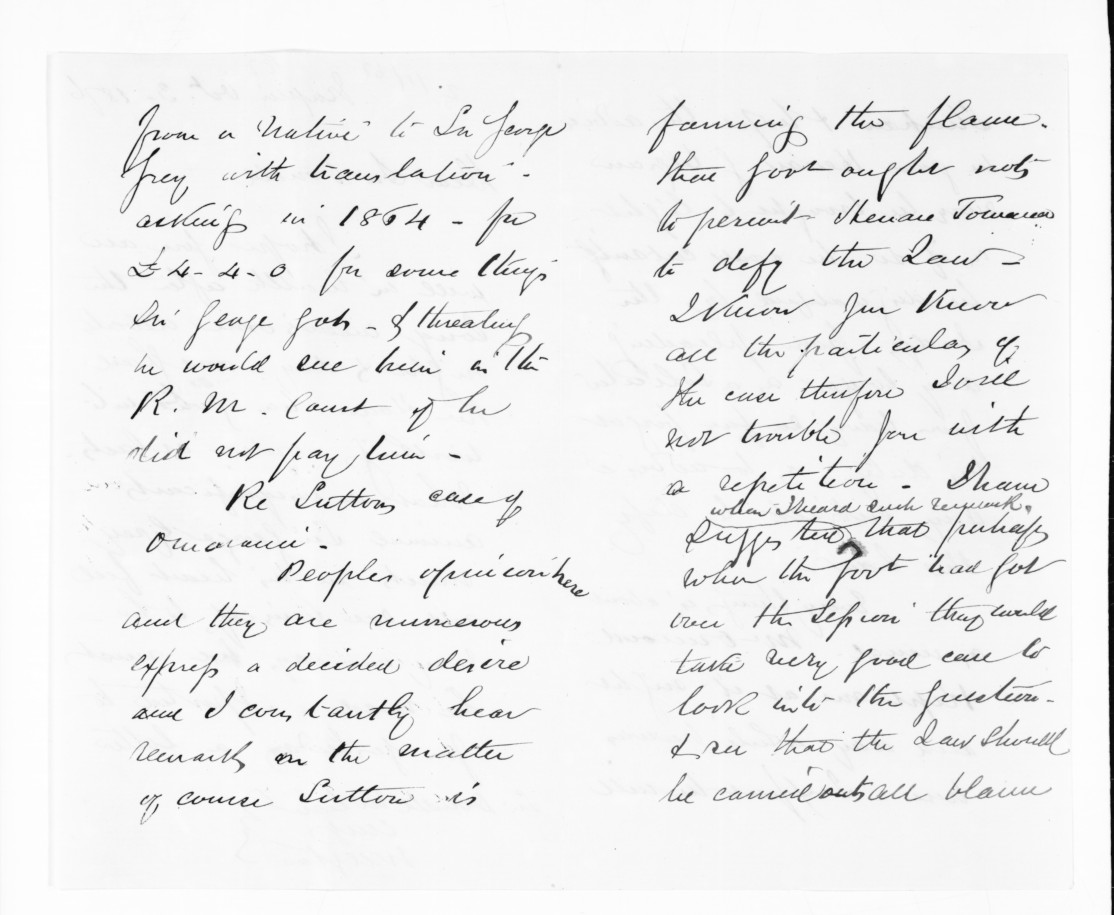 from a "Native" to Sir George
Grey with translation -
asking in 1864 - for
£4-4-0 for some things
Sir George got - & threatens
he would sue him in the
R. M. Court if he
did not pay him -
Re Suttons case of
Omaranui -
Peoples opinion here
and they are numerous
express a decided desire
and I constantly hear
remarks on the matter
of course Sutton is
fanning the flame.
that Govt ought not
to permit Henare Tomoana
to defy the Law -
I know you know
all the particulars of
the case therefore I will
not trouble you with
a repetition - I have
when I heard such remarks.
suggested that perhaps
when the Govt had got
over the Session they would
take very good care to
look into the question -
& see that the Law should
be carried out all blame